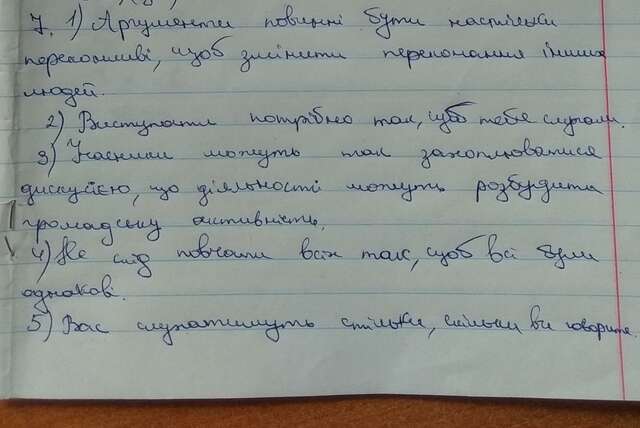 7. 1) Аргументи повинні бути настільки
переконливі, щоб змінити переконання інших
людей.
2) Виступати потрібно так, щоб тебе слухали.
3) Учасники можуть так захоплюватися
дискусією, що діяльності можуть розбудити
громадську активність.
4) Не слід повчати всіх так, щоб всі були
однакові.
5) Вас слухатимуть стільки, скільки ви говорите.